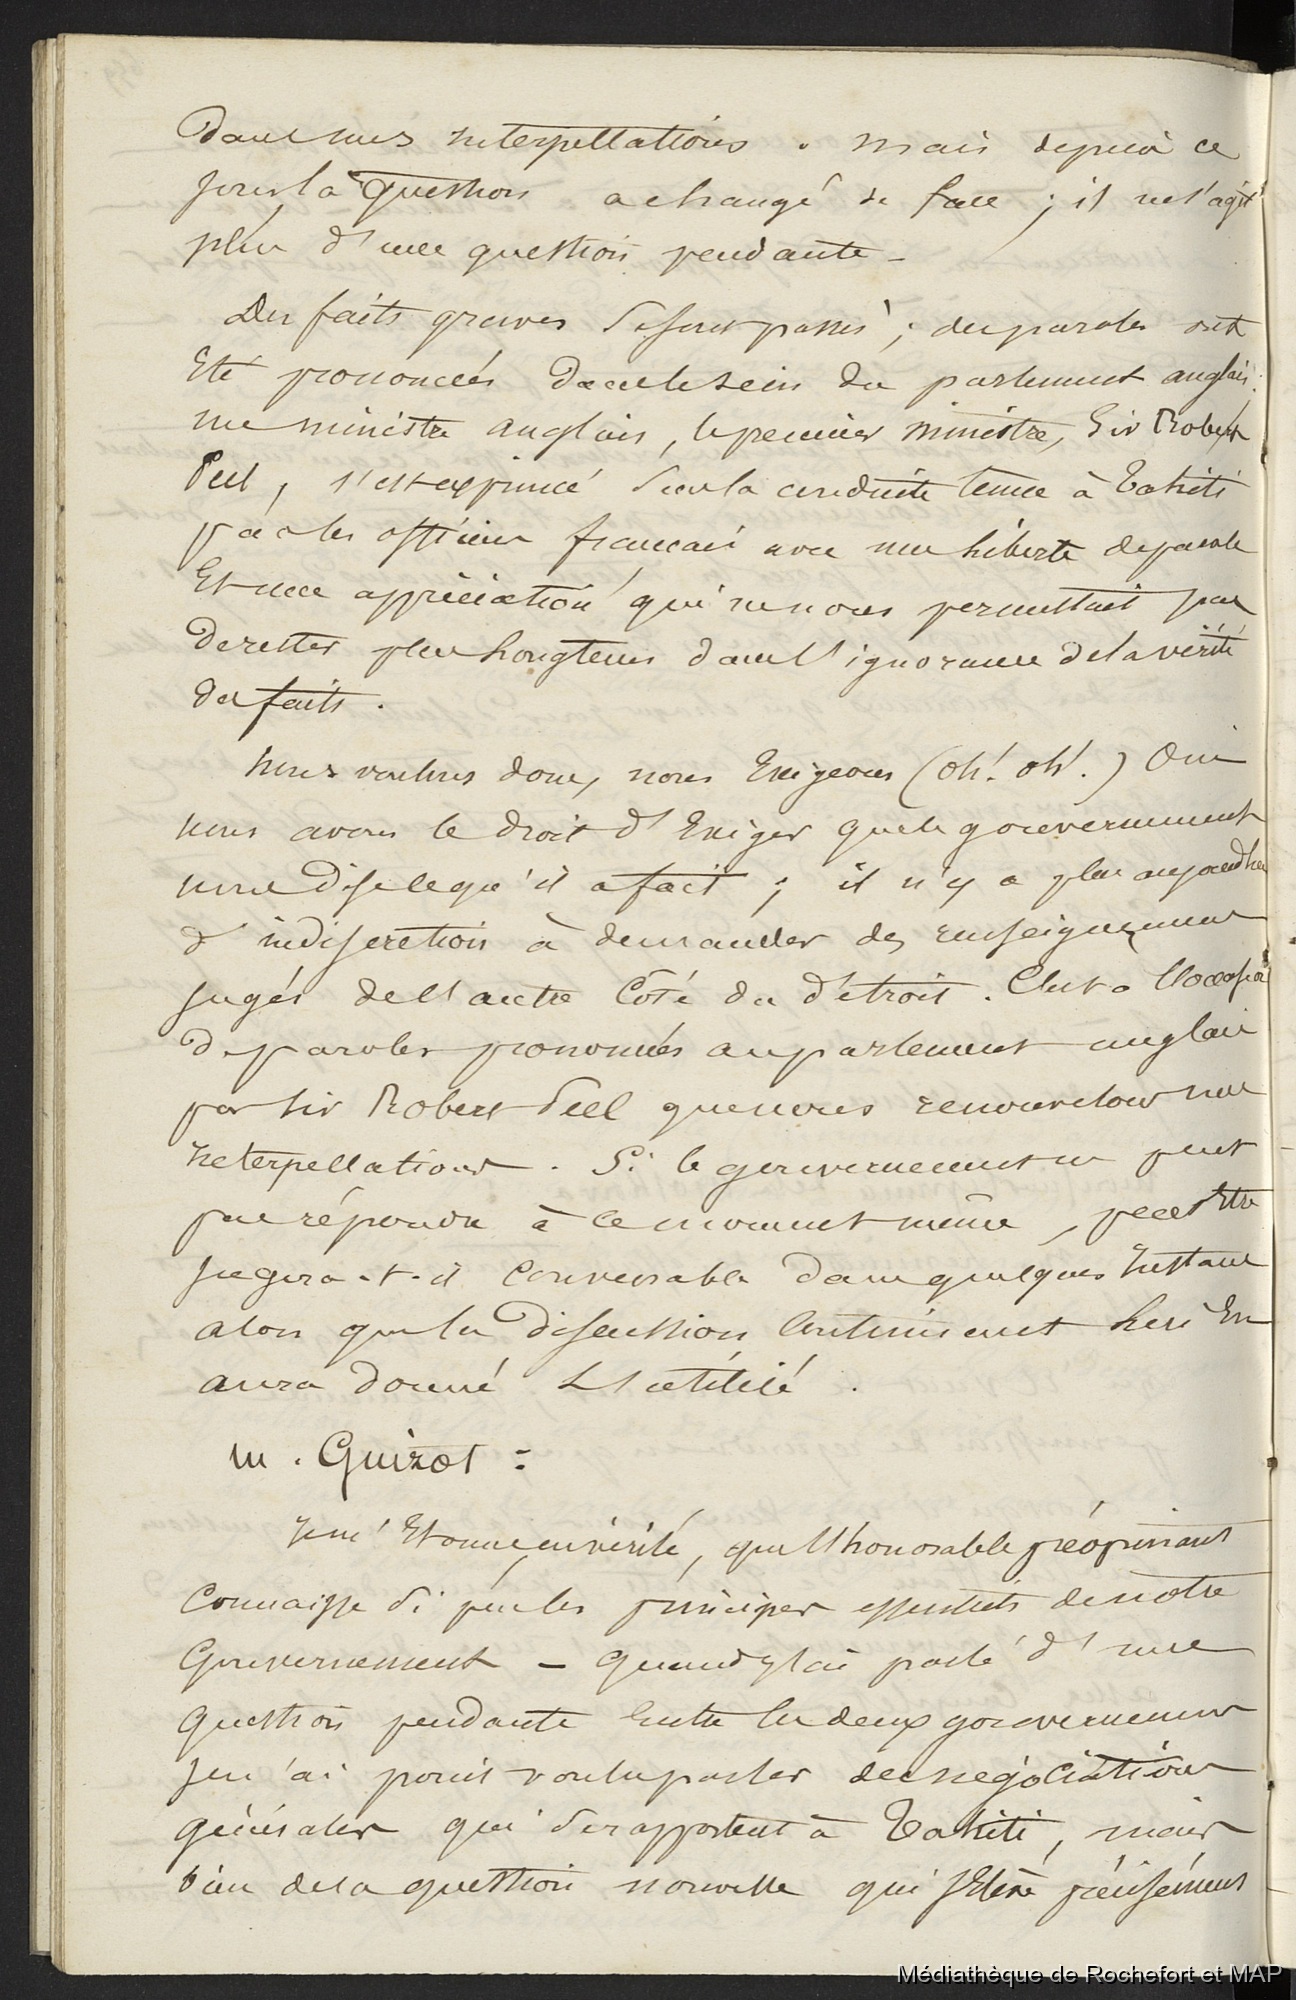 dans mes interpellations. mais depuis ce
jour la question a changé de face ; il ne s'agit
plus d'une question pendante -
Des faits graves se sont passés ; des paroles ont
Eté prononcées dans le sein du parlement anglais.
un ministre anglais, le premier ministre, Sir Robert
Peel, s'est exprimé sur la conduite tenue à Tahiti
par les officiers français avec une liberté de parole
Et une appréciation qui ne nous permettait pas
de rester plus longtems dans l'ignorance de la vérité
des faits.
Nous voulons donc, nous Exigeons (oh! oh!.) Oui
nous avons le droit d'Exiger que le gouvernement
nous dise ce qu'il a fait ; il n'y a plus aujourd'hui
d'indiscrétion à demander des renseignemens
jugés de l'autre côté du détroit. C'est a l'occasion
de paroles prononcées au parlement anglais
par Sir Robert Peel que nous renouvelons nos
interpellations. Si le gouvernement ne peut
pas répondre à ce moment même, peut être
jugera-t-il convenable dans quelques instans
alors que la discussion lui En
aura donné l'utilité.
M. Guizot :
Je m'Etonne, en vérité, que l'honorable préopinant
Connaisse si peu les principes essentiels de notre
Gouvernement - Quand j'ai parlé d'une
question pendante Entre les deux gouvernemens
je n'ai point voulu parler des négociations
générales qui se rapportent à Tahiti, mais
bien de la question nouvelle qui s'Elève précisément
Médiathèque de Rochefort et MAP